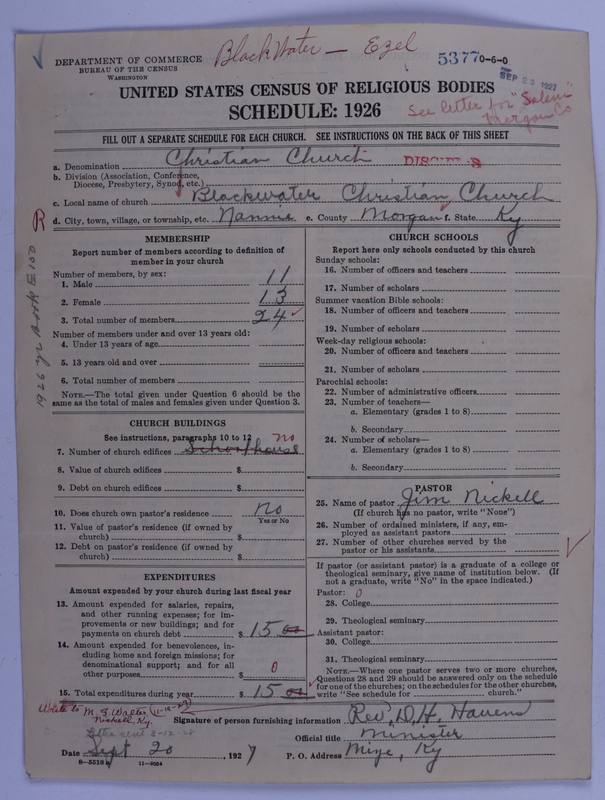 Blackwater — Ezel
DEPARTMENT OF COMMERCE
BUREAU OF THE CENSUS
WASHINGTON
5377 0-6-0
SEP 1927
UNITED STATES CENSUS OF RELIGIOUS BODIES
SCHEDULE: 1926
See letter for "Salem"
Morgan Co
FILL OUT A SEPARATE SCHEDULE FOR EACH CHURCH. SEE INSTRUCTIONS ON THE BACK OF THIS SHEET
a. Denomination Christian Church
b. Division (Association, Conference, Diocese, Presbytery, Synod, etc.)
c. Local name of church Blackwater Christian Church
R d. City, town, village, or township, etc. Nannie e. County Morgan f. State Ky
1926 yr Book E 100
MEMBERSHIP
Report number of members according to definition of member in your church
Number of members, by sex:
1. Male 11
2. Female 13
3. Total number of members 24
Number of members under and over 13 years old:
4. Under 13 years of age
5. 13 years old and over
6. Total number of members
NOTE.—The total given under Question 6 should be the same as the total of males and females given under Question 3.
CHURCH BUILDINGS
See instructions, paragraphs 10 to 12
no
7. Number of church edifices Schoolhouse
8. Value of church edifices $
9. Debt on church edifices $
10. Does church own pastor's residence no
Yes or No
11. Value of pastor's residence (if owned by church) $
12. Debt on pastor's residence (if owned by church) $
EXPENDITURES
Amount expended by your church during last fiscal year
13. Amount expended for salaries, repairs, and other running expenses; for improvements or new buildings; and for payments on church debt $ 15 00
14. Amount expended for benevolences, including home and foreign missions; for denominational support; and for all other purposes $ 0
15. Total expenditures during year $ 15 00
CHURCH SCHOOLS
Report here only schools conducted by this church
Sunday schools:
16. Number of officers and teachers
17. Number of scholars
Summer vacation Bible schools:
18. Number of officers and teachers
19. Number of scholars
Week-day religious schools:
20. Number of officers and teachers
21. Number of scholars
Parochial schools:
22. Number of administrative officers
23. Number of teachers—
a. Elementary (grades 1 to 8)
b. Secondary
24. Number of scholars—
a. Elementary (grades 1 to 8)
b. Secondary
PASTOR
25. Name of pastor Jim Nickell
(If church has no pastor, write "None")
26. Number of ordained ministers, if any, employed as assistant pastors
27. Number of other churches served by the pastor or his assistants
If pastor (or assistant pastor) is a graduate of a college or theological seminary, give name of institution below. (If not a graduate, write "No" in the space indicated.)
Pastor: 0
28. College
29. Theological seminary
Assistant pastor:
30. College
31. Theological seminary
NOTE.—Where one pastor serves two or more churches, Questions 28 and 29 should be answered only on the schedule for one of the churches; on the schedules for the other churches, write "See schedule for church."
Write to M. F. Walter (11-12-27)
Nickell, Ky.
Letter sent 3-12-28
Signature of person furnishing information Rev. D. H. Havens
Official title Minister
Date Sept 20, 1927 P. O. Address Mize, Ky
8-5518 11-9054